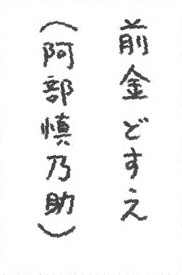 前金どすえ
(阿部慎乃助)